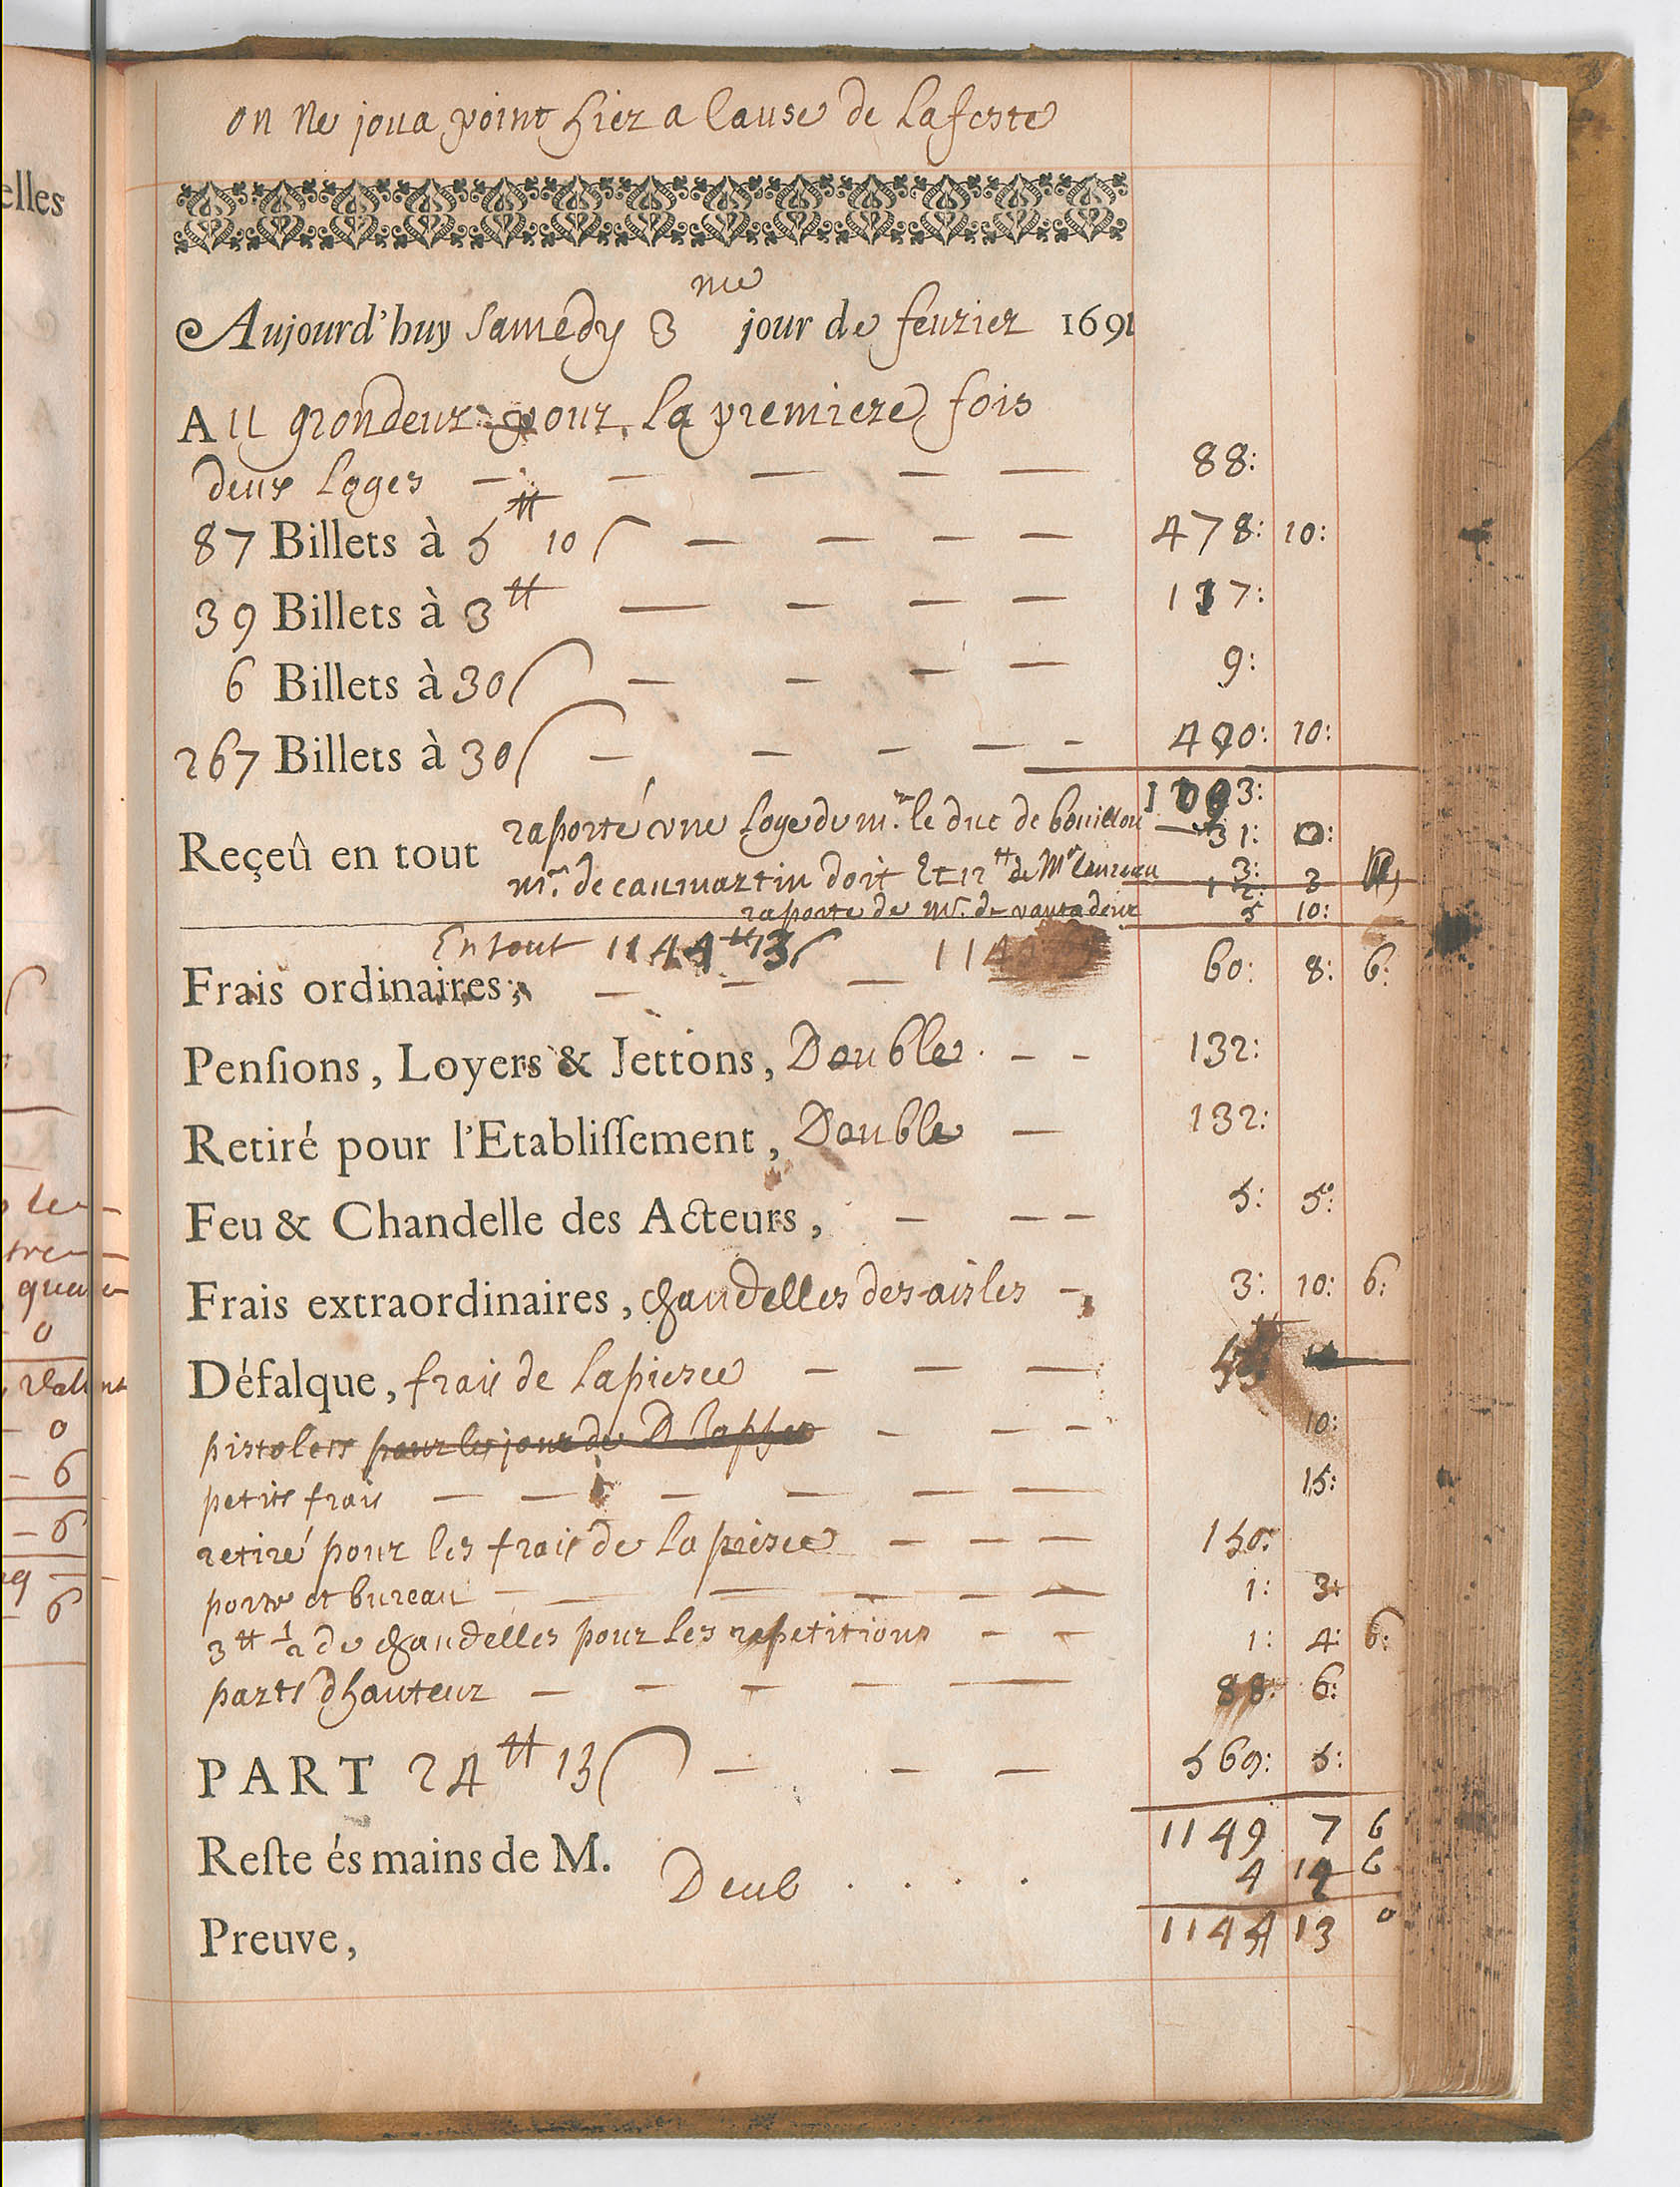 on ne joua point hier a Cause de Lafeste
Aujourd'huy Samedy 3me jour de feurier 1691
Au grondeur pour la premiere fois
deux Loges — — — — — 88:
87 Billets à 5tt 10s — — — — 478: 10:
39 Billets à 3tt — — — — 117:
6 Billets à 30s — — — — 9:
267 Billets à 30s — — — — - 400: 10:
1093:
Reçeû en tout raporté d'une Loge de mr. le duc de bouillon 31: 0:
mr. de caumartin doit 3: 3
Et 12tt de Mr 12:
raporte de mr. de vantadour 5 10:
En tout 1144tt 13s
Frais ordinaires, — — — 60: 8: 6:
Pensions, Loyers & Jettons, Double. - - 132:
Retiré pour l'Etablissement, Double — 132:
Feu & Chandelle des Acteurs, — — — 5: 5s:
Frais extraordinaires, chandelles des aisles - 3: 10: 6:
Défalque, frais de la piesce — — —
pistolets pour les jour de — — — 10:
petits frais — — — — — — 15:
retiré pour les frais de la piesce — — — 150:
porte et bureau — — — — — — 1: 3:
3tt 1/2 de chandelles pour les repetitions — — 1: 4: 6:
parts dhauteur — — — — — 88: 6:
PART 24tt 15s — — — 569: 5:
1149 7 6
Reste és mains de M. Deul . . . . 4 14 6
Preuve, 1144 13 0
elles